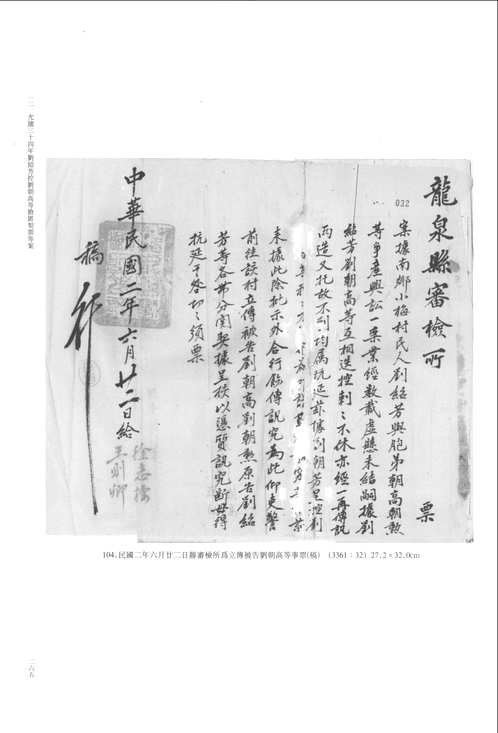 一一 光緒三十四年劉紹芳控劉朝高等搶匿契票等案
龍泉縣審檢所
票
032
案據南鄉小梅村民人劉紹芳與胞弟朝高朝勲
等爭產興訟一案業經數載虛懸未結嗣據劉
紹芳劉朝高等互相迭控到々不休亦經一再傳訊
兩造又托故不到均屬玩延茲據劉朝芳呈控劉
案
来據此除批示外合行飭傳訊究爲此仰吏警
前往該村立傳被告劉朝高劉朝勲原告劉紹
芳等各帶分関契據呈核以憑質訊究斷毋得
抗延干咎切々須票
中華民國二年六月廿二日給
稿
行
徐志棪
吳則卿
104.民國二年六月廿二日縣審檢所爲立傳被告劉朝高等事票(稿) (3361:32) 27.2×32.0cm
二六五